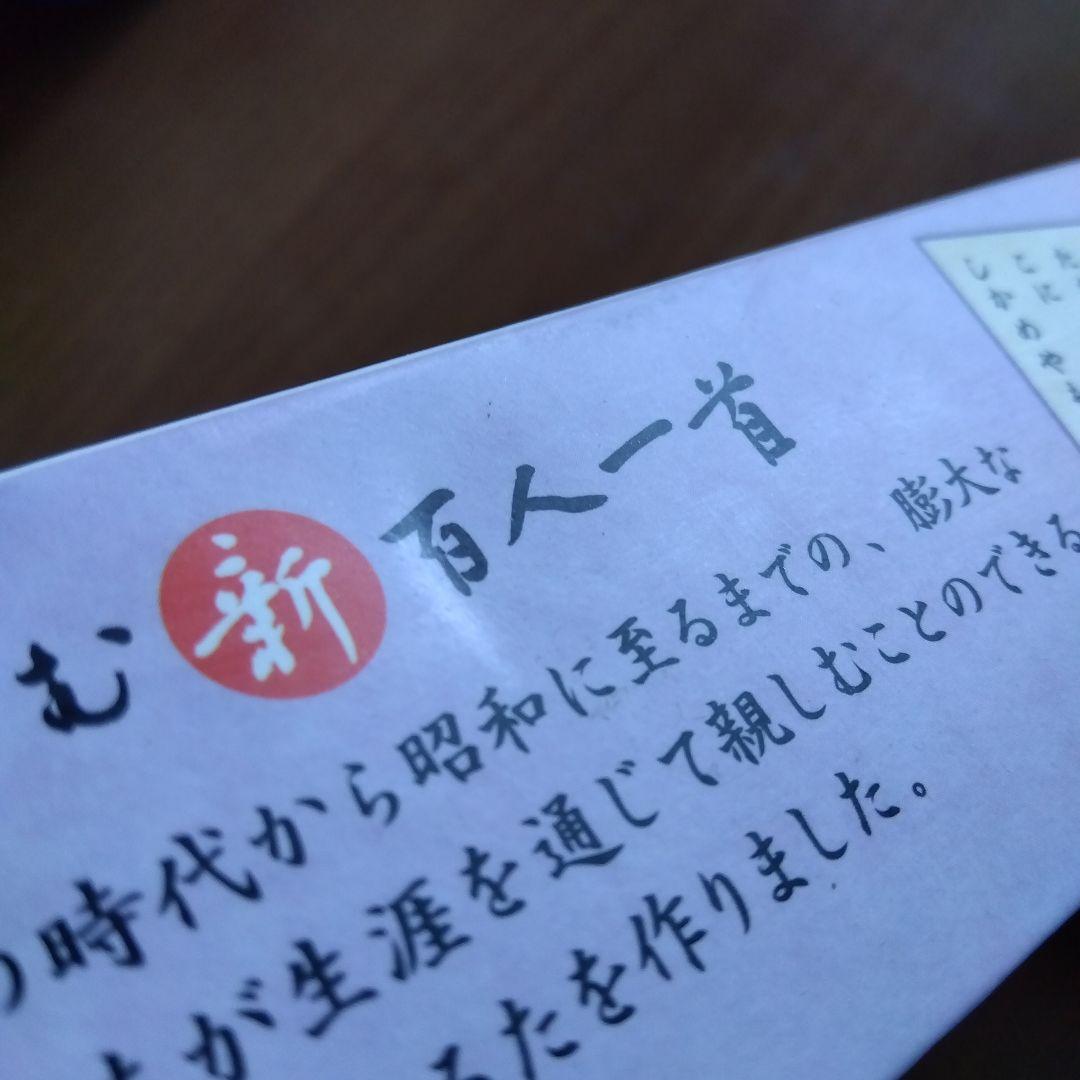 む新百人一首
の時代から昭和に至るまでの、膨大な
が生涯を通じて親しむことのできる
るたを作りました。
た
こに
しかめやま